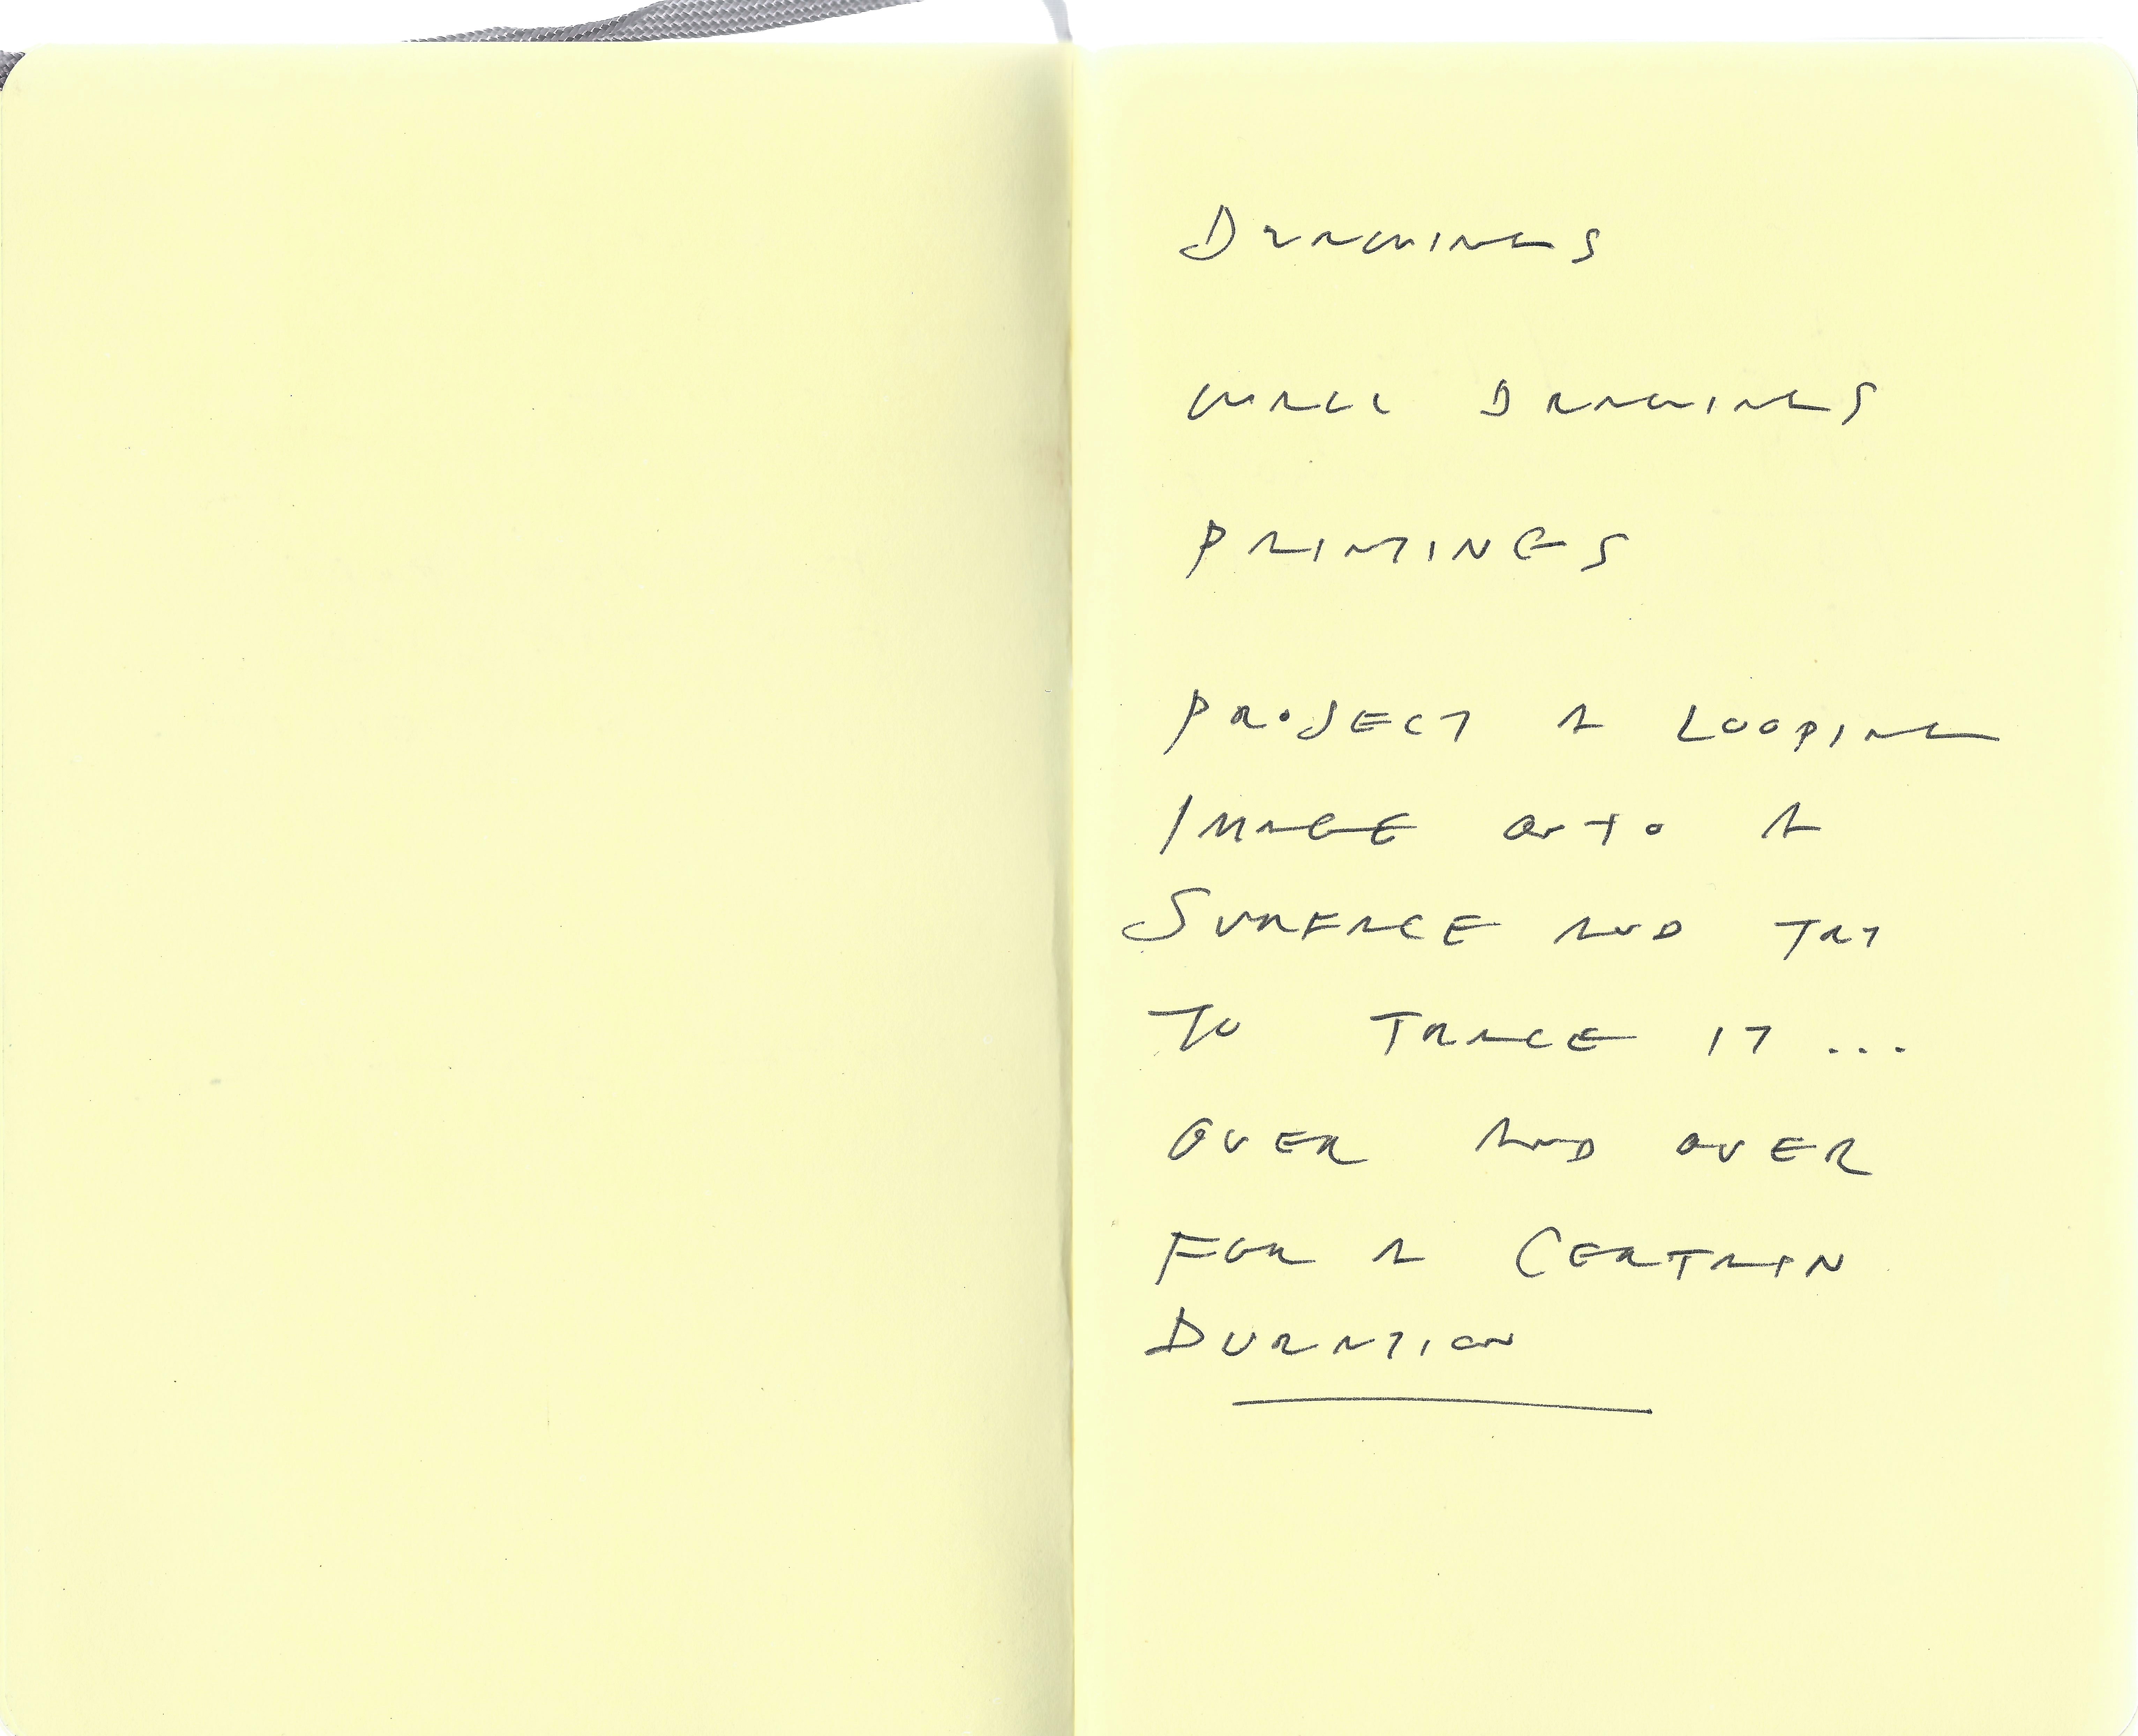 DRAWINGS
WALL DRAWINGS
PAINTINGS
PROJECT A LOOPING
IMAGE ONTO A
SURFACE AND TRY
TO TRACE IT...
OVER AND OVER
FOR A CERTAIN
DURATION